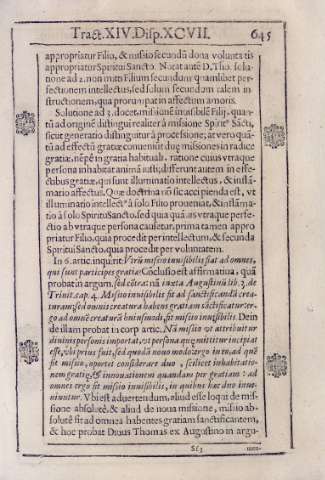 Tract. XIV. Disp. XCVII. 645
appropriatur Filio, & missio secundũ dona voluntatis
appropriatur Spiritui Sancto. Notat autẽ D. Tho. solu-
tione ad 2. non mitti Filium secundum quamlibet per-
fectionem intellectus, sed solum secundum talem in-
structionem, qua prorumpat in affectum amoris.
Solutione ad 3. docet, missionẽ inuisibilẽ Filij, quan-
tũ ad originẽ distingui realiter à missione Spirit⁹ Sãcti,
sicut generatio distinguitur à processione; at vero quã-
tũ ad effectũ gratiæ conueniũt duę missiones in radice
gratiæ, nẽpè in gratia habituali, ratione cuius vtraque
persona inhabitat animã iusti; differunt autem in effe-
ctibus gratiæ, qui sunt illuminatio intellectus, & inflã-
matio affectus. Quæ doctrina nõ sic accipienda est, vt
illuminatio intellect⁹ à solo Filio proueniat, & inflãma-
tio à solo Spiritu Sancto, sed quia quãuis vtraque perfe-
ctio ab vtraque persona causetur, prima tamen appro
priatur Filio, quia procedit per intellectum, & secunda
Spiritui Sancto, quia procedit per voluntatem.
In 6. artic. inquirit: Vtrũ missio inuisibilis fiat ad omnes,
qui sunt participes gratiæ? Cõclusio est affirmatiua, quã
probat in argum. sed cõtra: nã iuxta Augustinũ lib. 3. de
Trinit. cap. 4. Missio inuisibilis fit ad sanctificandã crea-
turam; sed omnis creatura habens gratiam sãctificatur: er-
go ad omnẽ creaturã huiusmodi, fit missio inuisibilis. Dein
de illam probat in corp. artic. Nã missio vt attribuitur
diuinis personis importat, vt persona quæ mittitur incipiat
esse, vbi prius fuit, sed quodã nouo modo: ergo in eo, ad quẽ
fit missio, oportet considerare duo, scilicet inhabitatio-
nem gratię, & innouationem quandam per gratiam: ad
omnes ergò fit missio inuisibilis, in quibus hæc duo inue-
niuntur. Vbi est aduertendum, aliud esse loqui de mis-
sione absolutè, & aliud de noua missione, missio ab-
solutè fit ad omnes habentes gratiam sanctificantem,
& hoc probat Diuus Thomas ex Augustino in argu-
Sſ3 men-